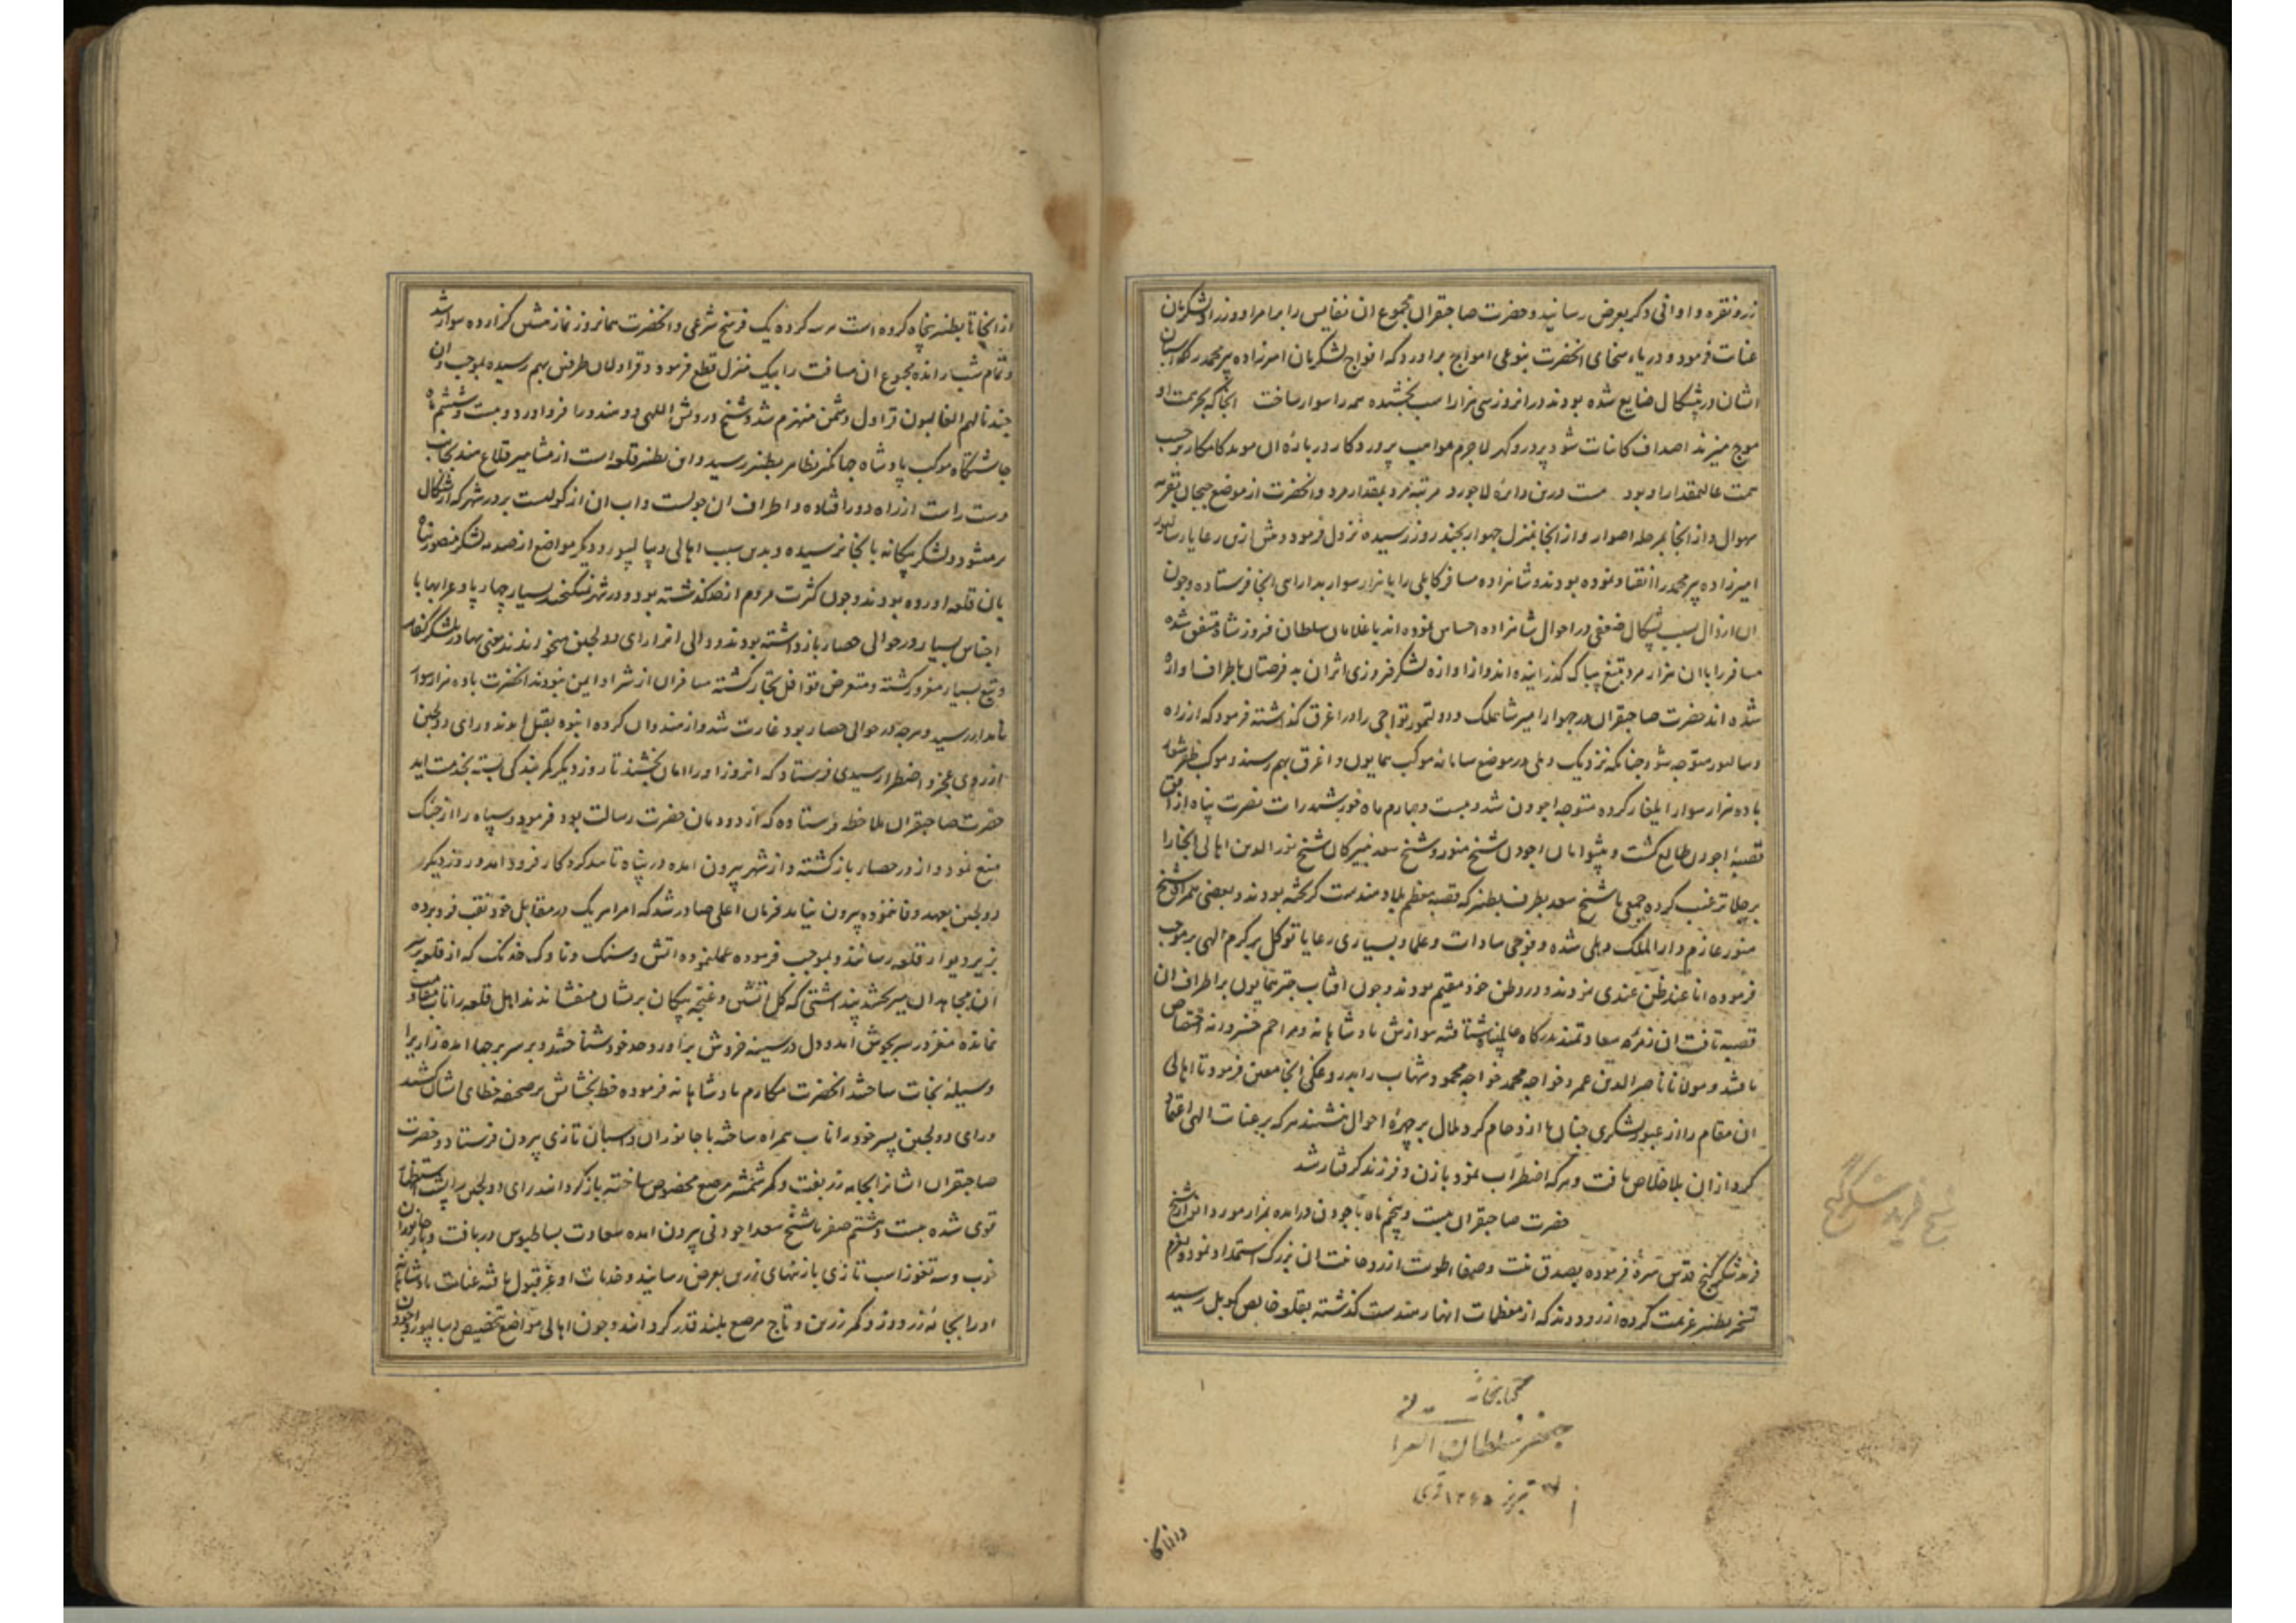 زر و نقره و اوانی دکر بعرض رسانید و حضرت صاحبقران مجموع ان نفایس را بر امرا و وزرا و لشکریان
عنایت فرمود و دریاء سخای انحضرت بنوعی امواج براورد که افواج لشکریان امیرزاده پیرمحمد را که اسبان
ایشان در پشکال ضایع شده بودند در انروز سی هزار اسب بخشیده همه را سوار ساخت
موج میزند اصداف کاینات شود پر در و کهر لاجرم مواهب پروردکار در باره ان موید کامکار بر حسب
همت عالیمقدار او بود درین دایره لاجورد مرتبه مرد بمقدار مرد و انحضرت از موضع جنجان بقریه
سهوال و از انجا بمرحله اصوار و از انجا بمنزل جهوار بچند روز رسیده نزول فرمود و پیش ازین رعایا
امیرزاده پیرمحمد را انقیاد نموده بودند و شاهزاده مسافر کابلی را با هزار سوار بدارایی انجا فرستاده و چون
ان اراذل بسبب پشکال ضعفی در احوال شاهزاده احساس نموده اند با غلامان سلطان فیروزشاه متفق شده
مسافر را با ان هزار مرد بتیغ بیباک کذرانیده اند و از اوازه لشکر فیروزی اثر ان بد فرصتان باطراف اواره
شده اند حضرت صاحبقران در جهوار امیر شاهملک و دولتمور تواجی را در اغرق کذاشته فرمود که از راه
دیبالپور متوجه شود چنانکه نزدیک دهلی در موضع سامانه موکب همایون و اغرق بهم رسند و موکب ظفرشعار
با ده هزار سوار ایلغار کرده متوجه اجودن شد و بیست و چهارم ماه خورشید رایت نصرت پناه از افق
قصبه اجودن طالع کشت و پیشوایان اجودن شیخ منور و شیخ سعد نبیرکان شیخ نورالدین اهالی انجا را
بر جلا ترغیب کرده جمعی با شیخ سعد بطرف بطنیر که قصبه معظم بلاد هندست کریخته بودند و بعضی همراه شیخ
منور عازم دارالملک دهلی شده و فوجی سادات و علما و بسیاری رعایا توکل بر کرم الهی بر موجب
فرموده انا عند ظن عبدی نمودند و در وطن خود مقیم بودند و چون افتاب چتر همایون بر اطراف ان
قصبه تافت ان زمره سعادتمند بدرکاه عالمپناه شتافته بنوازش پادشاهانه و مراحم خسروانه اختصاص
یافتند و مولانا ناصرالدین عمر و خواجه محمد خواجه محمود شهاب را بداروغکی انجا معین فرمود تا اهالی
ان مقام را از عبور لشکری چنان با ازدحام کرد ملال بر چهره احوال ننشیند هر که بر عنایت الهی اعتماد
کرد ازان بلا خلاص یافت و هر که اضطراب نمود با زن و فرزند کرفتار شد
حضرت صاحبقران بیست و پنجم ماه باجودن درامده بمزار مورد انوار شیخ
فرید شکر کنج قدس سره فرموده بصدق نیت و صفاء طویت از روحانیت ان بزرک استمداد نمود و بعزم
تسخیر بطنیر عزیمت کرده از رود دند که از معظمات انهار هندست کذشته بقلعه خالص کوبل رسید
شیخ فرید شکر گنج
کتابخانه
جعفر سلطان القرائی
تبریز
از انجا
از انجا تا بطنیر پنجاه کروه است هر سه کروه یک فرسخ شرعی و انحضرت همانروز نماز پیشین کزارده سوار شد
و تمام شب رانده مجموع ان مسافت را بیک منزل قطع فرمود و قراولان طرفین بهم رسیده بموجب و ان
جندنا لهم الغالبون قراول دشمن منهزم شد و شیخ درویش اللهی دو هندو را فرود اورد و بیست و ششم ماه
چاشتکاه موکب پادشاه جهانکیر بظاهر بطنیر رسید و این بطنیر قلعه است از مشاهیر قلاع هند بجانب
دست راست از راه دور افتاده و اطراف ان چولست و اب ان از کولیست بر در شهر که از پشکال
پر میشود و لشکر بیکانه بانجا نرسیده و بدین سبب اهالی دیبالپور و دیکر مواضع از صدمه لشکر منصور پناه
بان قلعه اورده بودند و چون کثرت مردم از حد کذشته بود و در شهر نمیکنجید بسیار چهارپا و عرابها با
اجناس بسیار در حوالی حصار باز داشته بودند و والی انرا رای دولجین میخواندند
و تبع بسیار مغرور کشته و متعرض قوافل تجار کشته مسافران از شر او ایمن نبودند انحضرت با ده هزار سوار
نامدار رسید و هرچه در حوالی حصار بود غارت شد و از هندوان کروه انبوه بقتل امدند و رای دولجین
از روی عجز و اضطرار سیدی فرستاد که انروز او را امان بخشند تا روز دیکر کمر بندکی بسته بخدمت اید
حضرت صاحبقران ملاحظه فرستاده که از دودمان حضرت رسالت بود فرمود و سپاه را از جنک
منع نمود و از در حصار بازکشته و از شهر بیرون امده در پناه تایید کردکار فرود امد و روز دیکر
دولجین بعهد وفا ننموده بیرون نیامد فرمان اعلی صادر شد که امرا هریک در مقابل خود نقب فرو برده
بزیر دیوار قلعه رسانند و بموجب فرموده عمل نموده اتش و سنک و ناوک خدنک که از قلعه بر سر
ان مجاهدان میریختند پنداشتی که کل اتشین و غنچه پیکان بریشان میفشانند اهل قلعه را تاب مقاومت
نمانده مغز در سر بجوش امد و دل در سینه خروش براورد و حد خود شناختند و بر سر برجها امده زاری را
وسیله نجات ساختند انحضرت مکارم پادشاهانه فرموده خط بخشایش بر صحیفه خطای ایشان کشید
و رای دولجین پسر خود را نایب همراه ساخته با جانوران و اسبان تازی بیرون فرستاد و حضرت
صاحبقران ایشانرا بجامه زربفت و کمر شمشیر مرصع مخصوص ساخته باز کردانید رای دولجین را پشت استظهار
قوی شده بیست و هشتم صفر با شیخ سعد اجودنی بیرون امده سعادت بساطبوس دریافت و جانوران
خوب و سه تقوز اسب تازی با زینهای زرین بعرض رسانید و خدمات او عز قبول یافته عنایت پادشاهانه
او را بجامه زردوز و کمر زرین و تاج مرصع بلند قدر کردانید و چون اهالی مواضع بتخصیص دیبالپور و اجودن